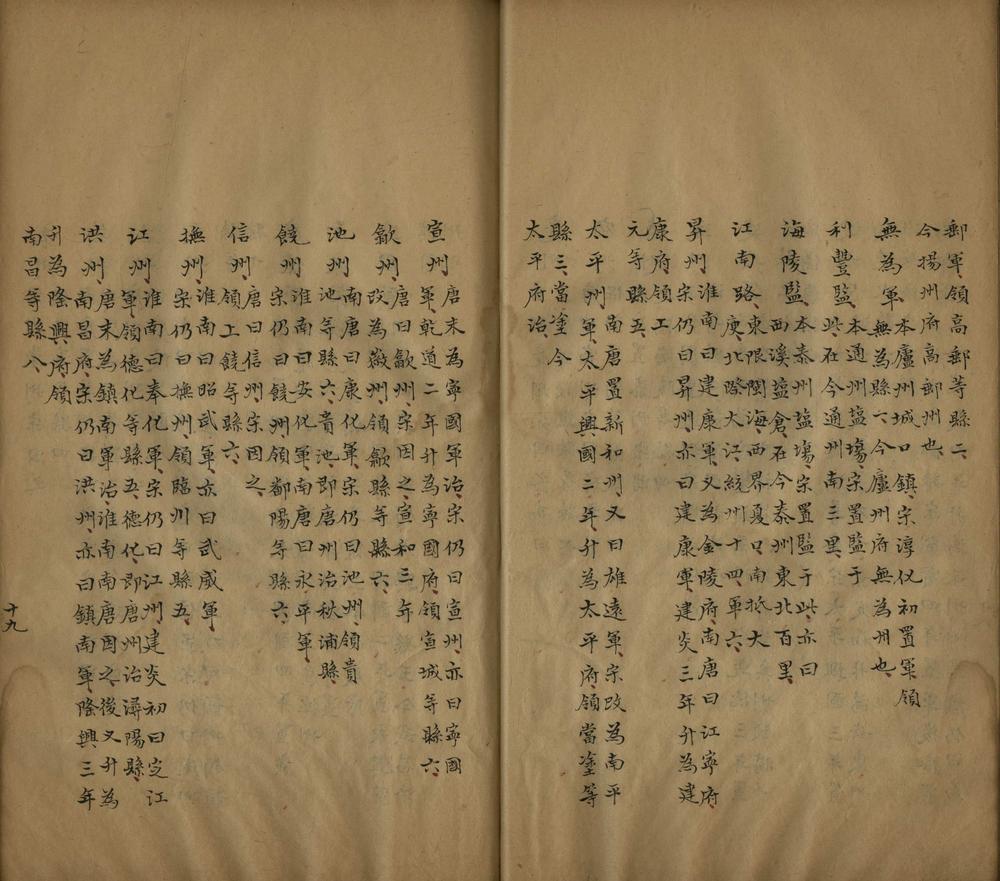 郵軍領高郵等縣二、
今揚州府高郵州也、
無為軍本廬州城口鎮宋淳化初置軍領
無為縣一今廬州府無為州也、
利豐監、本通州鹽塲宋置監于
此在今通州南三里、
海陵監、本泰州鹽塲宋置監于此亦曰
西溪鹽倉在今泰州東北百里、
江南路、東限閩海、西界夏口、南抵大
庾、北際大江、統州十四、軍六、
昇州淮南曰建康軍、又為金陵府、南唐曰江寧府、
宋仍曰昇州、亦曰建康軍、建炎三年升為建
康府、領工
元等縣五、
太平州南唐置新和州、又曰雄遠軍、宋改為南平
軍、太平興國二年升為太平府、領當塗等
縣三、當塗今
太平府治、
宣州、唐末為寧國軍治、宋仍曰宣州、亦曰寧國
軍、乾道二年升為寧國府、領宣城等縣六、
歙州、唐曰歙州、宋因之、宣和三年
改為徽州、領歙縣等縣六、
池州南唐曰康化軍、宋仍曰池州、領貴
池等縣六、貴池即唐州治秋浦縣、
饒州淮南曰安化軍、南唐曰永平軍、
宋仍曰饒州、領鄱陽等縣六、
信州、唐曰信州、宋因之、
領上饒等縣六、
撫州、淮南曰昭武軍、亦曰武威軍、
宋仍曰撫州、領臨川等縣五、
江州、淮南曰奉化軍、宋仍曰江州、建炎初曰定江
軍、領德化等縣五、德化即唐州治潯陽縣、
洪州、唐末為鎮南軍治、淮南南唐因之、後又升為
南昌府、宋仍曰洪州、亦曰鎮南軍、隆興三年
升為隆興府、領
南昌等縣八、
十九